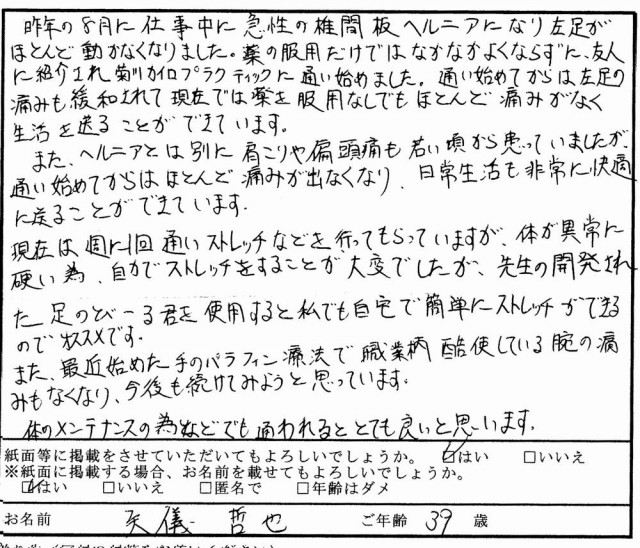 昨年の8月に仕事中に急性の椎間板ヘルニアになり左足が
ほとんど動かなくなりました。薬の服用だけではなかなかよくならずに、友人
に紹介され菊川カイロプラクティックに通い始めました。通い始めてからは左足の
痛みも緩和されて現在では薬を服用なしでもほとんど痛みがなく
生活を送ることができています。
また、ヘルニアとは別に肩こりや偏頭痛も若い頃から患っていましたが、
通い始めてからはほとんど痛みが出なくなり、日常生活も非常に快適
に送ることができています。
現在は週に1回通いストレッチなどを行ってもらっていますが、体が異常に
硬い為、自力でストレッチをすることが大変でしたが、先生の開発され
た足のびーる君を使用すると私でも自宅で簡単にストレッチができる
のでオススメです。
また、最近始めた手のパラフィン療法で職業柄酷使している腕の痛
みもなくなり、今後も続けてみようと思っています。
体のメンテナンスの為などでも通われるととても良いと思います。
紙面等に掲載をさせていただいてもよろしいでしょうか。 ☑はい □いいえ
※紙面に掲載する場合、お名前を載せてもよろしいでしょうか。
☑はい □いいえ □匿名で □年齢はダメ
お名前 矢儀 哲也 ご年齢 39 歳